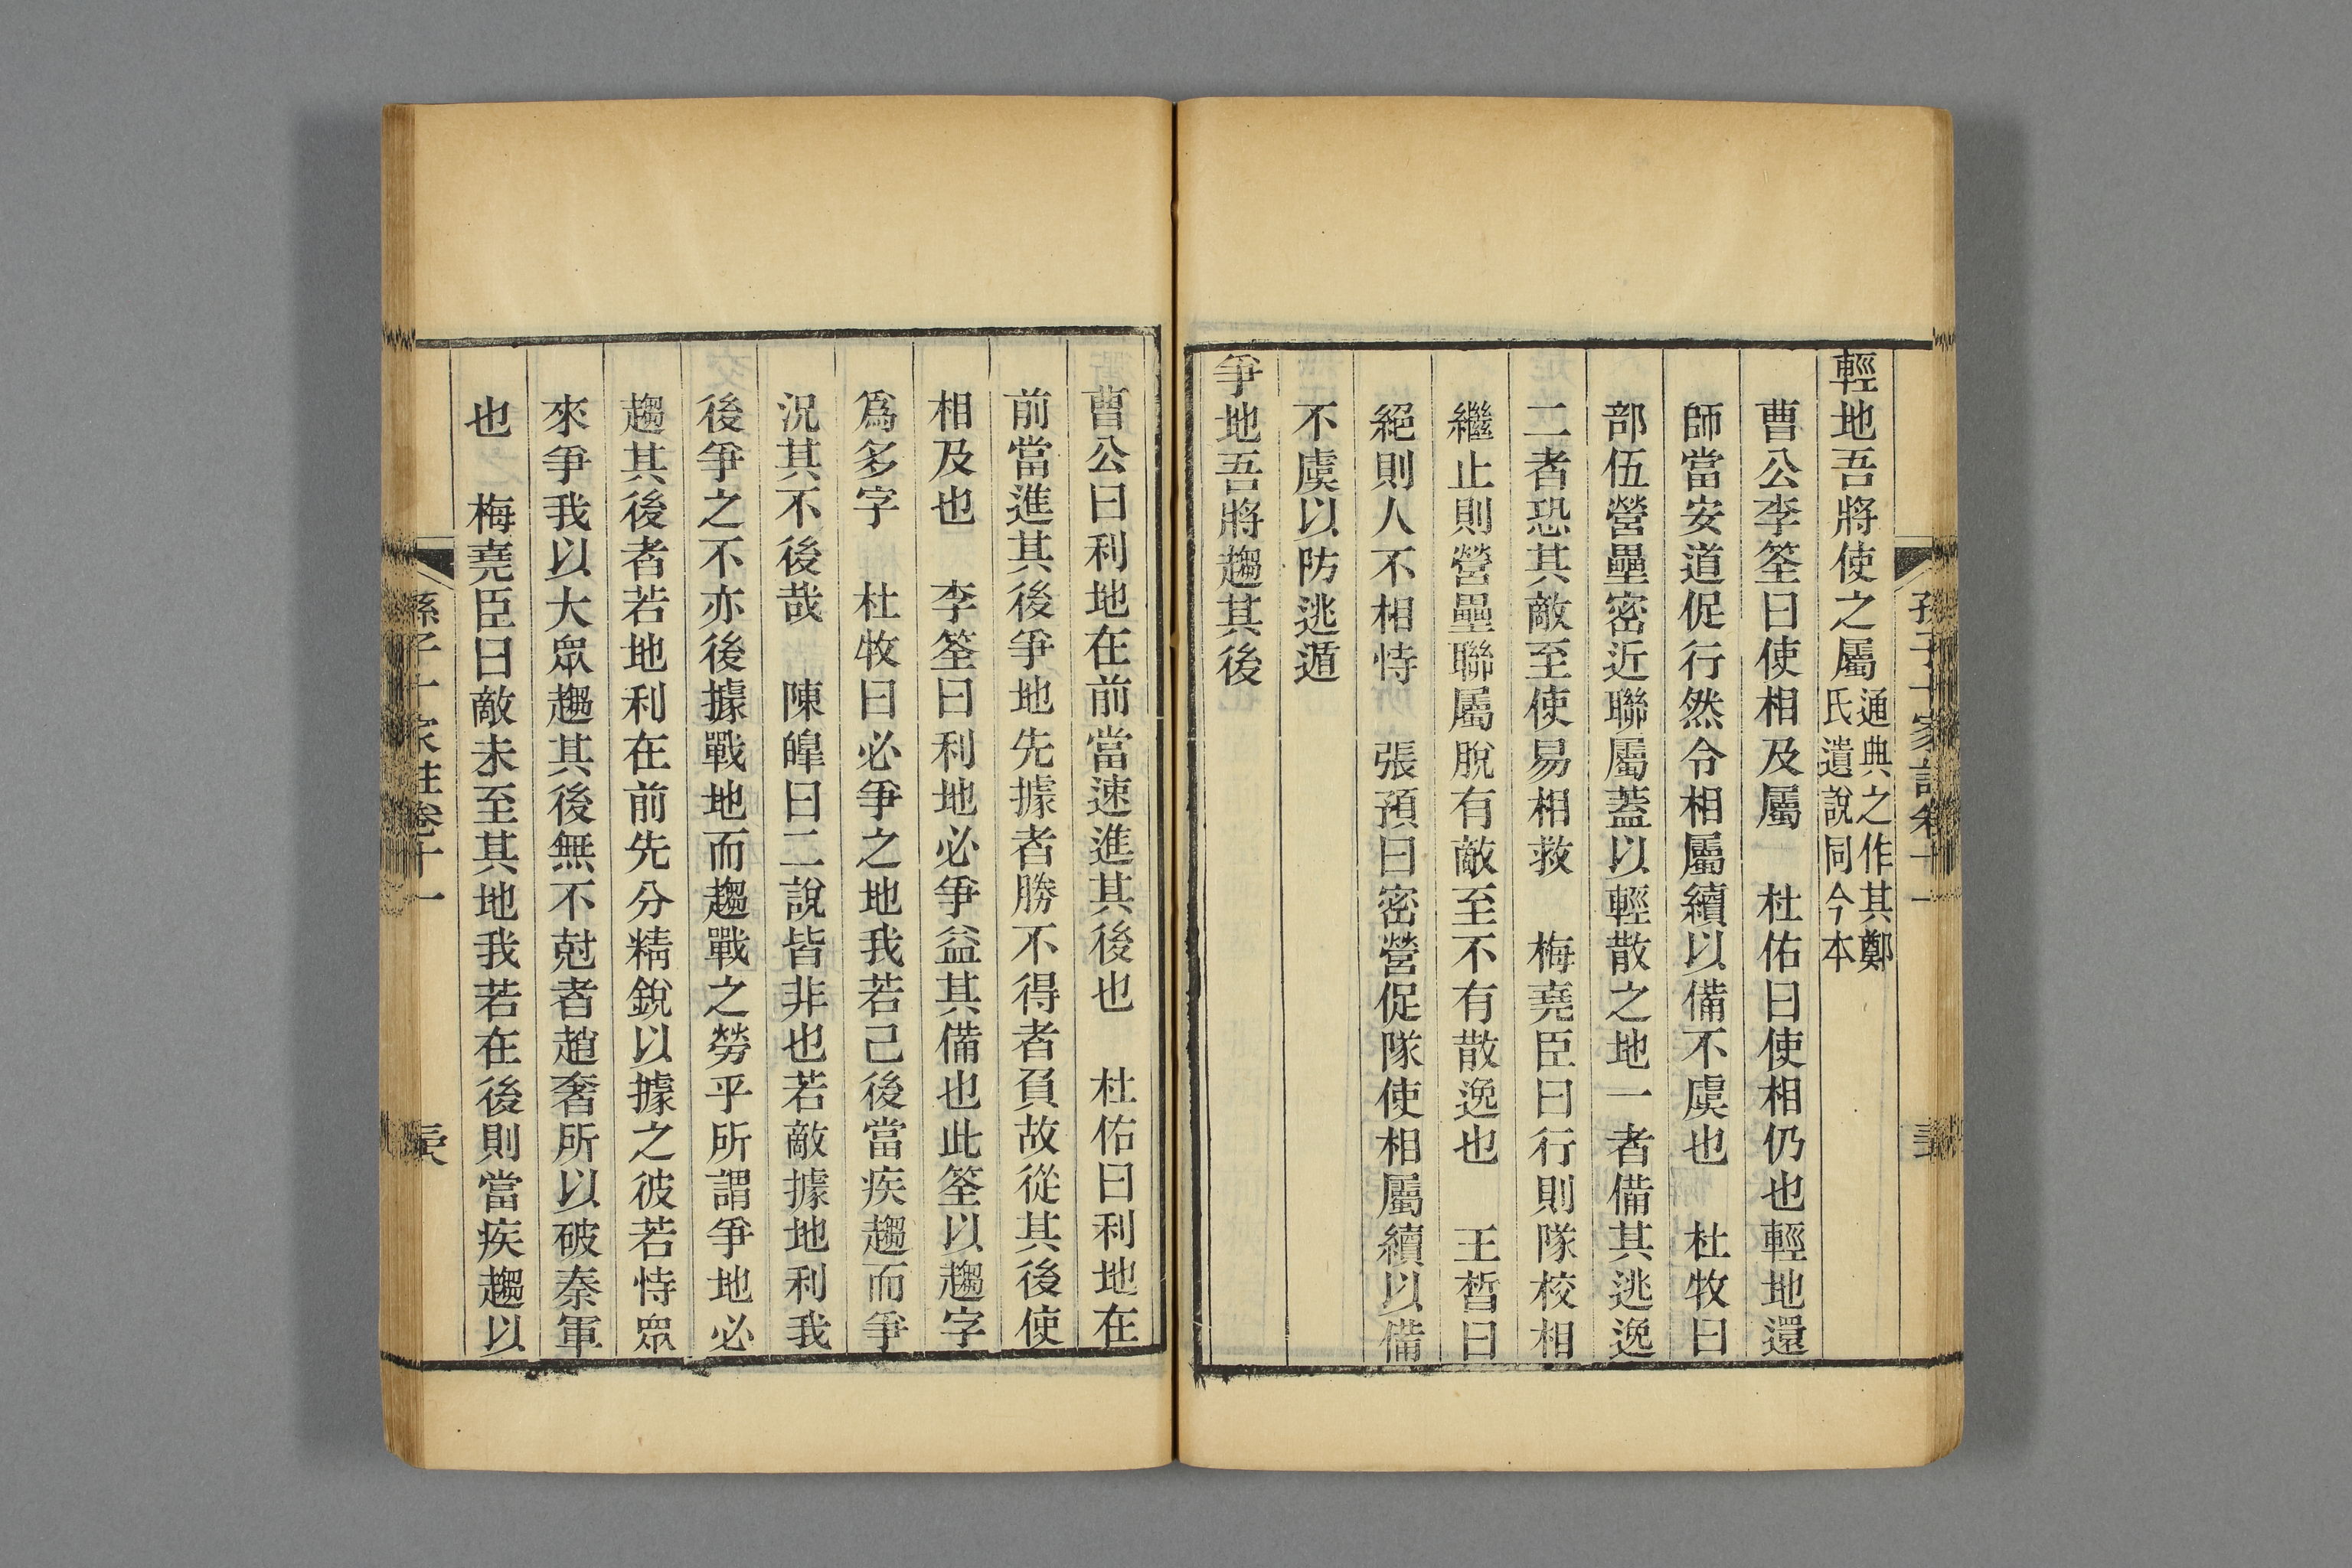 輕地吾將使之屬通典之作其鄭氏遺說同今本
曹公李筌曰使相及屬 杜佑曰使相仍也輕地還
師當安道促行然令相屬續以備不虞也 杜牧曰
部伍營壘密近聯屬蓋以輕散之地一者備其逃逸
二者恐其敵至使易相救 梅堯臣曰行則隊校相
繼止則營壘聯屬脫有敵至不有散逸也 王晳曰
絕則人不相恃 張預曰密營促隊使相屬續以備
不虞以防逃遁
爭地吾將趨其後
曹公曰利地在前當速進其後也 杜佑曰利地在
前當進其後爭地先據者勝不得者負故從其後使
相及也 李筌曰利地必爭益其備也此筌以趨字
爲多字 杜牧曰必爭之地我若己後當疾趨而爭
況其不後哉 陳皥曰二說皆非也若敵據地利我
後爭之不亦後據戰地而趨戰之勞乎所謂爭地必
趨其後者若地利在前先分精銳以據之彼若恃眾
來爭我以大眾趨其後無不尅者趙奢所以破秦軍
也 梅堯臣曰敵未至其地我若在後則當疾趨以
孫子十家註卷十一